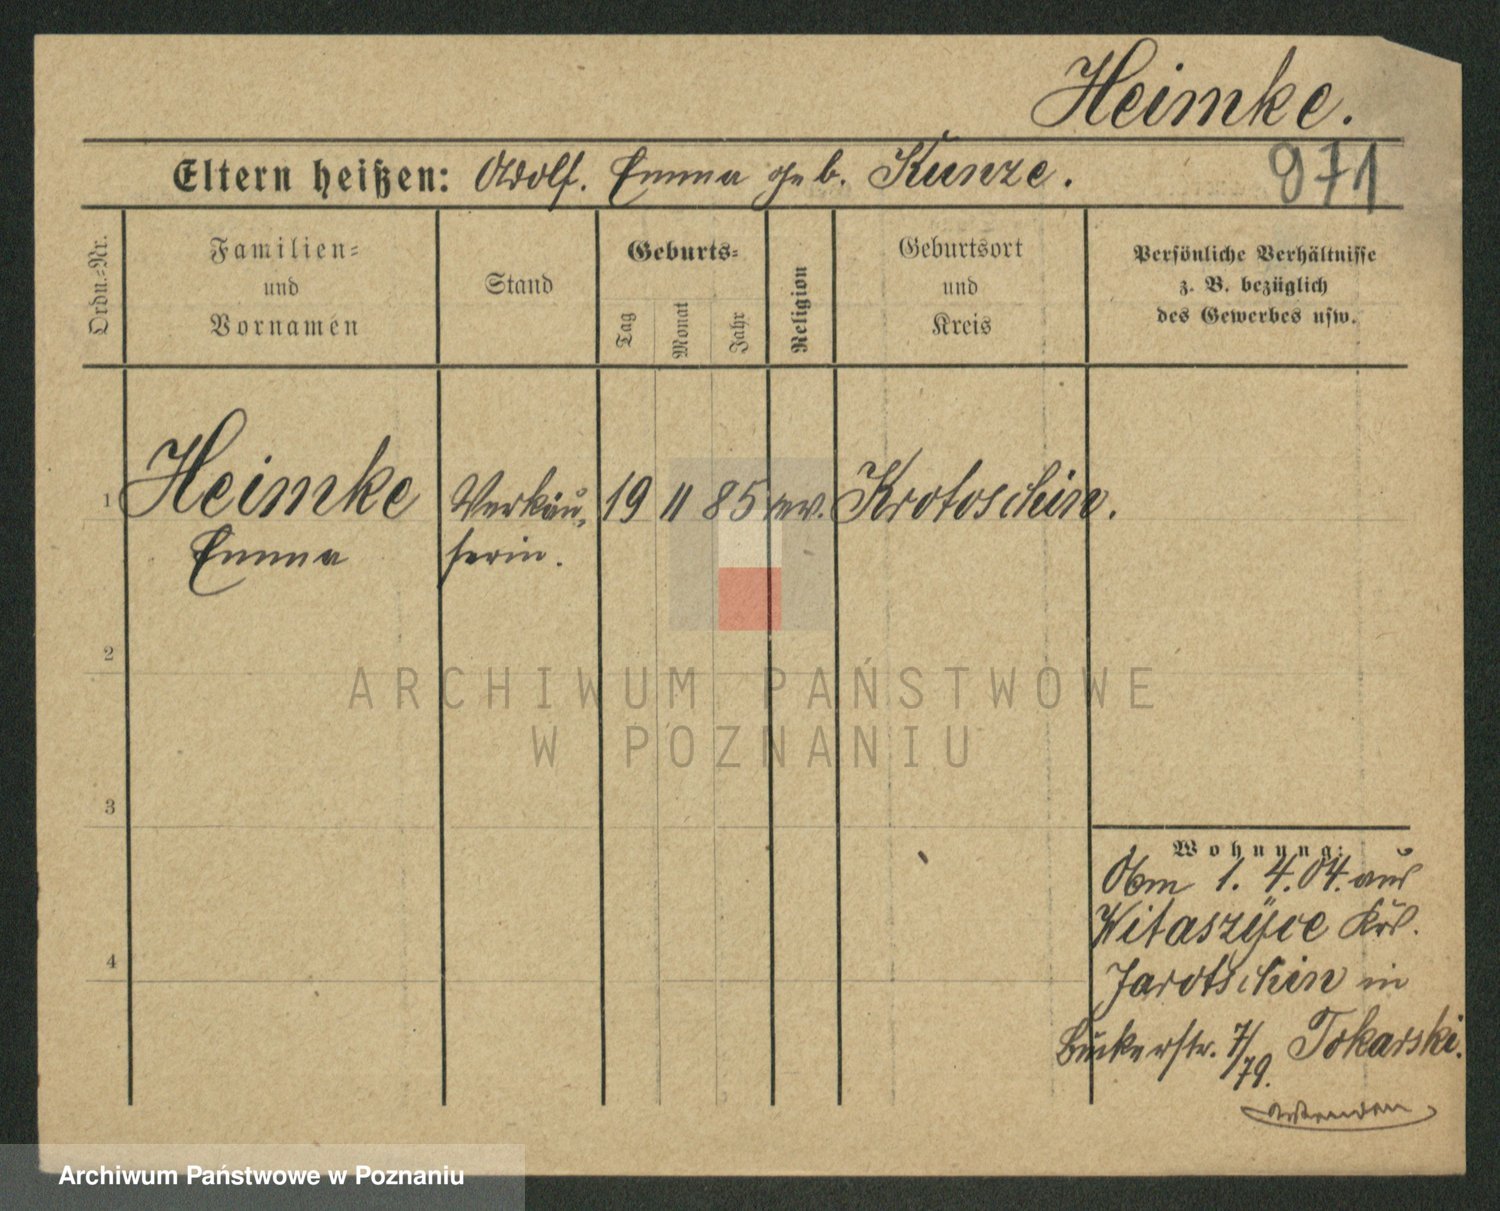 Heimke.
Eltern heißen: Adolf. Emma geb. Kunze.
971
Ordn.=Nr.
Familien=
und
Vornamen
Stand
Geburts=
Tag
Monat
Jahr
Religion
Geburtsort
und
Kreis
Persönliche Verhältnisse
z. B. bezüglich
des Gewerbes usw.
1 Heimke Verkäu= 19 11 85 ev. Krotoschin.
Emma ferin.
2
3
4
Wohnung:
1. 4. 04. aus
Witaszyce Krs.
Jarotschin in
Bukerstr. 7/ Tokarski.
79.
ARCHIWUM PAŃSTWOWE
W POZNANIU
Archiwum Państwowe w Poznaniu